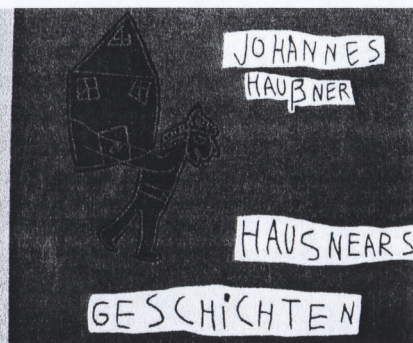 JOHANNES
HAUẞNER
HAUSNEARS
GESCHiCHTEN